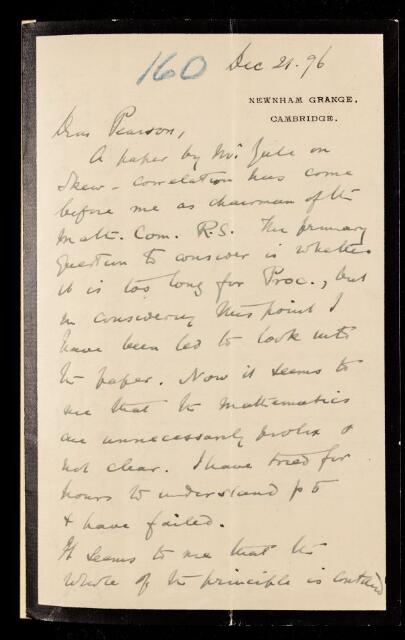 160 Dec 21. 96
NEWNHAM GRANGE,
CAMBRIDGE.
Dear Pearson,
A paper by Mr. Yule on
skew-correlation has come
before me as chairman of the
Math. Com. R.S. The primary
question to consider is whether
it is too long for Proc., but
in considering this point I
have been led to look into
the paper. Now it seems to
me that the mathematics
are unnecessarily prolix &
not clear. I have tried for
hours to understand p 5
& have failed.
It seems to me that the
whole of the principle is contained